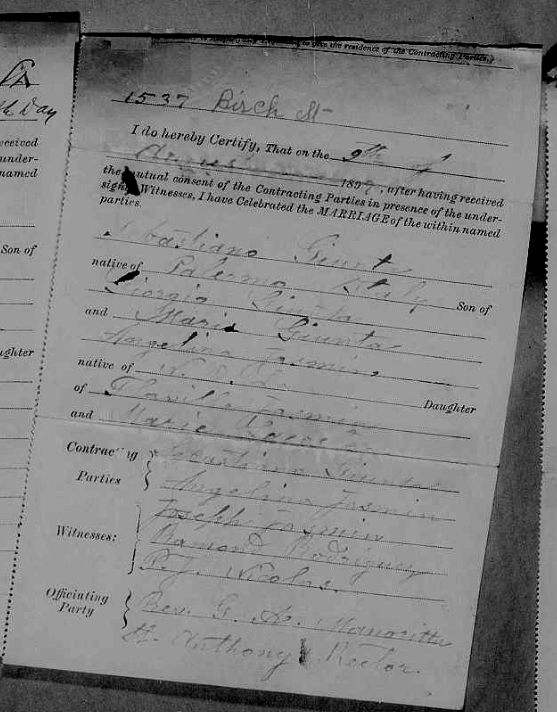 to give the residence of the Contracting Parties.
1537 Birch St
I do hereby Certify, That on the 9th of
1897, after having received
the mutual consent of the Contracting Parties in presence of the under-
signed Witnesses, I have Celebrated the MARRIAGE of the within named
parties.
Sebastiano Giunta
native of Palermo Italy Son of
Giorgio Giunta
and Maria Giunta
Angelina Jasmin
native of N. O. La Daughter
of Jasmin
and Marie
Contracting Parties { Sebastiano Giunta
Angelina Jasmin
Witnesses: { Joseph Jasmin
Ramond Rodriguez
P. J. Nicolas.
Officiating Party { Rev. G. A.
St. Anthony Rector.
eceived
under-
named
Son of
ughter